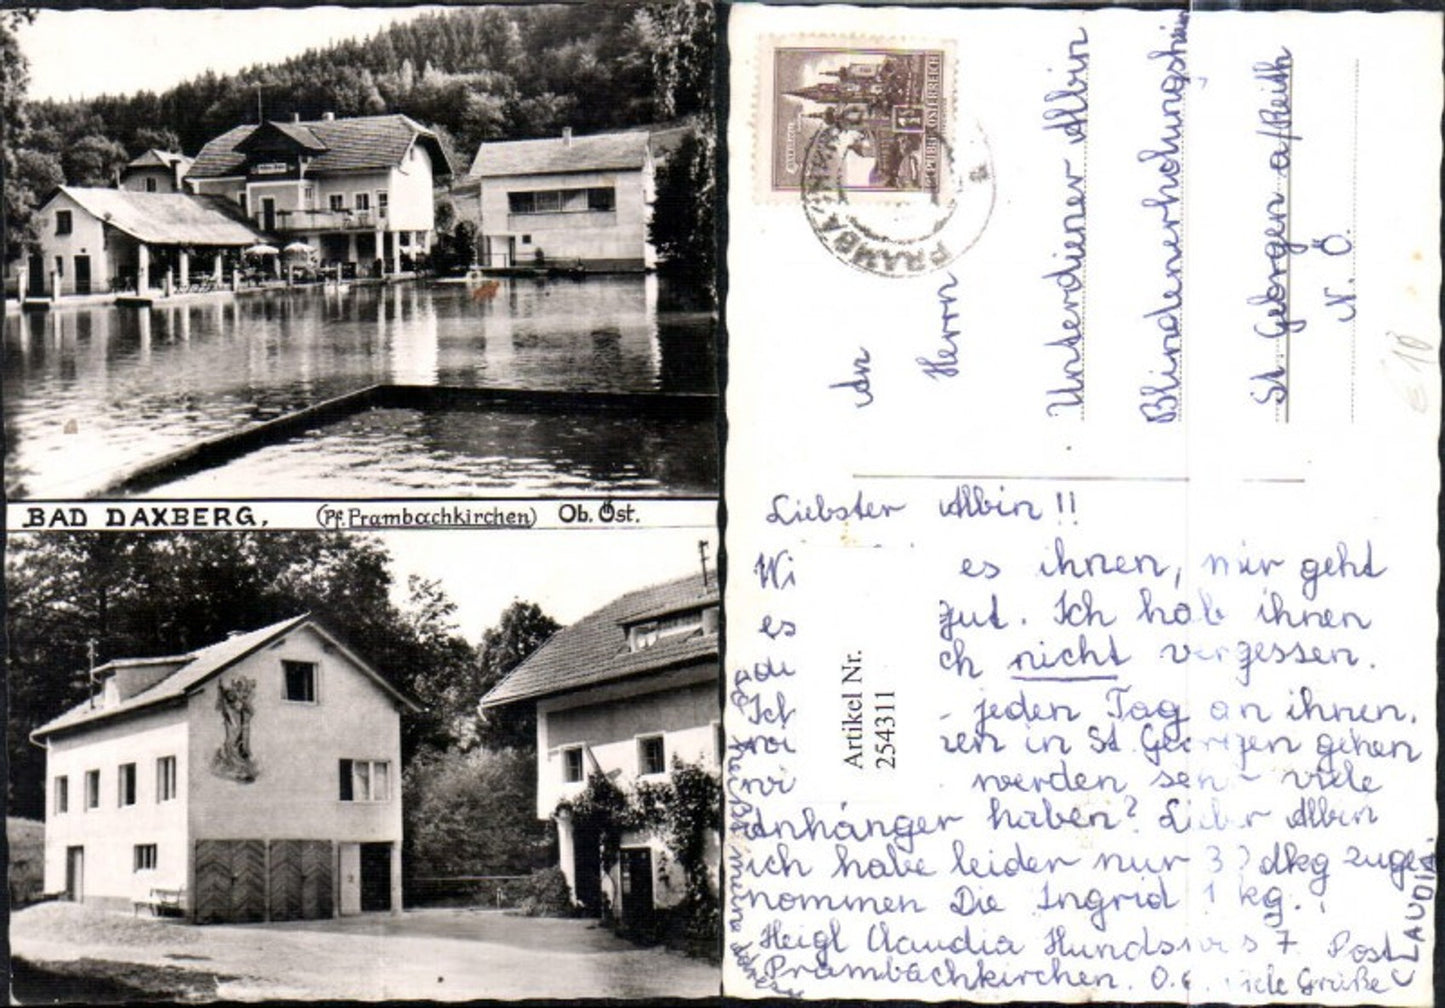 BAD DAXBERG, (Pf. Prambachkirchen) Ob. Öst.
REPUBLIK ÖSTERREICH
An
Herrn
Unterdiener Albin
Blindenerholungsheim
St. Georgen a/Reith
N. Ö.
€ 10
Liebster Albin !!
Wi es ihnen, mir geht
es gut. Ich hab ihnen
ch nicht vergessen.
Ich jeden Tag an ihnen.
in St. Georgen gehen
wi werden sehr viele
Anhänger haben? Lieber Albin
ich habe leider nur dkg zuge
nommen Die Ingrid 1 kg.
Heigl Claudia 7 Post
Prambachkirchen. O.Ö. viele Grüße
CLAUDIA
Artikel Nr.
254311